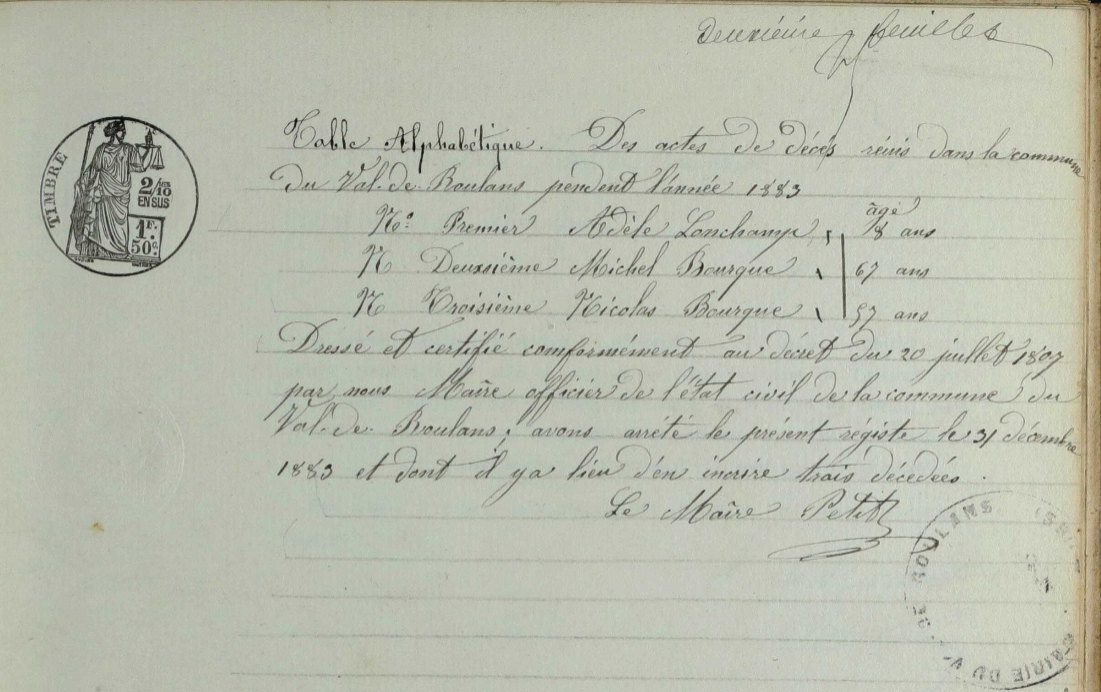 deuxième feuillet
Table Alphabétique. Des actes de décés réuis dans la commune
du Val-de-Roulans pendent l'année 1883
âgé
No Premier Adèle Lonchamp, 8 ans
N Deuxsième Michel Bourque, 67 ans
N Troisième Nicolas Bourque, 57 ans
Dressé et certifié comformément au décret du 20 juillet 1807
par nous Maîre officier de l'état civil de la commune du
Val-de-Roulans; avons arrété le présent régiste le 31 décembre
1883 et dont il y a lieu d'en incrire trois décedées.
Le Maîre Petit
TIMBRE
2/10 EN SUS
1F.
50c.
MAIRIE DU V DE ROULANS